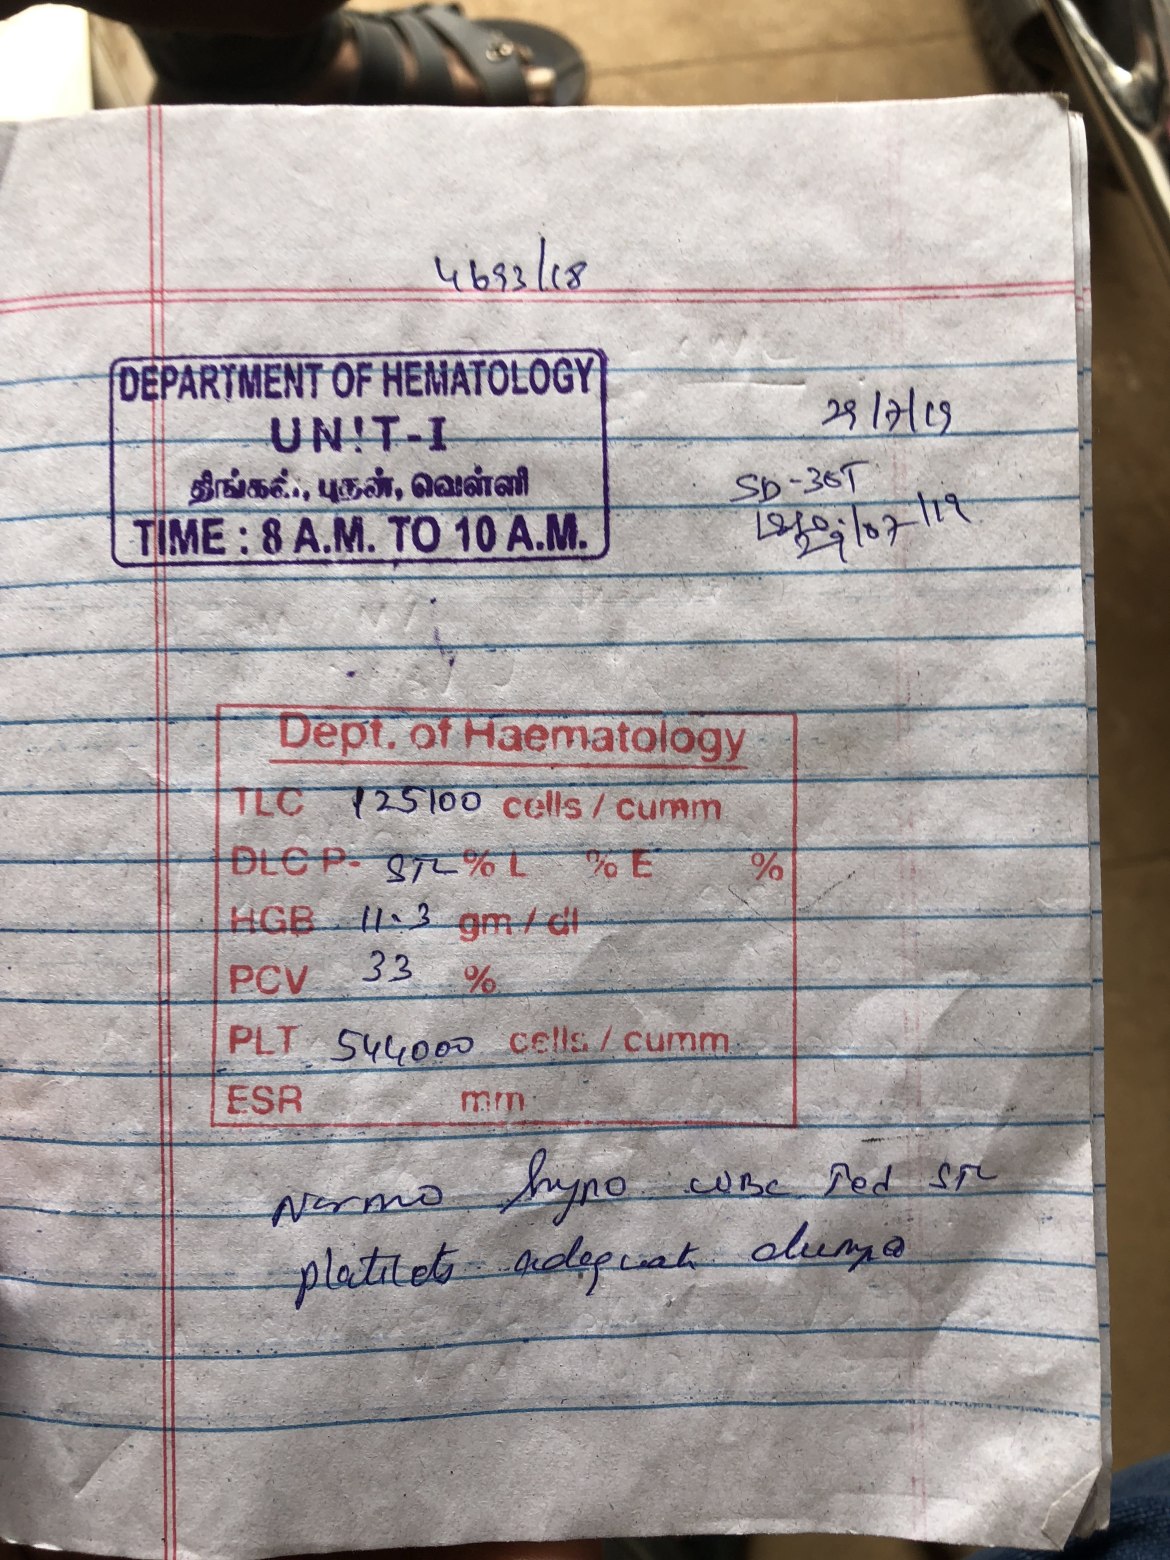 4693/18
DEPARTMENT OF HEMATOLOGY
UNIT-I
திங்கள், புதன், வெள்ளி
TIME : 8 A.M. TO 10 A.M.
29/7/19
SD-36T
29/07/19
Dept. of Haematology
TLC 125100 cells / cumm
DLC P- STL % L % E %
HGB 11.3 gm / dl
PCV 33 %
PLT 544000 cells / cumm
ESR mm
Normo hypo WBC Ted STL
platelets adequate clumps